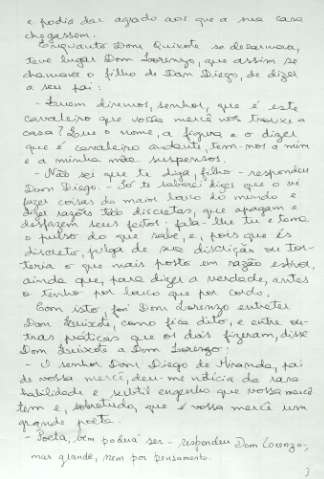 e podia dar agrado aos que a sua casa
chegassem.
Enquanto Dom Quixote se desarmava,
teve lugar Dom Lorenzo, que assim se
chamava o filho de Dom Diego, de dizer
a seu pai:
- Quem diremos, senhor, que é este
cavaleiro que vossa mercê nos trouxe a
casa? Que o nome, a figura e o dizer
que é cavaleiro andante, tem-nos a mim
e a minha mãe suspensos.
- Não sei que te diga, filho - respondeu
Dom Diego. - Só te saberei dizer que o vi
fazer coisas do maior louco do mundo e
dizer razões tão discretas, que apagam e
desfazem seus feitos: fala-lhe tu e toma
o pulso do que sabe, e, pois que és
discreto, julga de sua discrição ou ton-
teria o que mais posto em razão estiver,
ainda que, para dizer a verdade, antes
o tenho por louco que por cordo.
Com isto, foi Dom Lorenzo entreter
Dom Quixote, como fica dito, e entre ou-
tras práticas que os dois fizeram, disse
Dom Quixote a Dom Lorenzo:
- O senhor Dom Diego de Miranda, pai
de vossa mercê, deu-me notícia da rara
habilidade e subtil engenho que vossa mercê
tem e, sobretudo, que é vossa mercê um
grande poeta.
- Poeta, bem poderá ser - respondeu Dom Lorenzo,
mas grande, nem por pensamento.